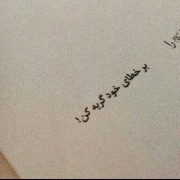 بر خطای خود گریه کن!
را